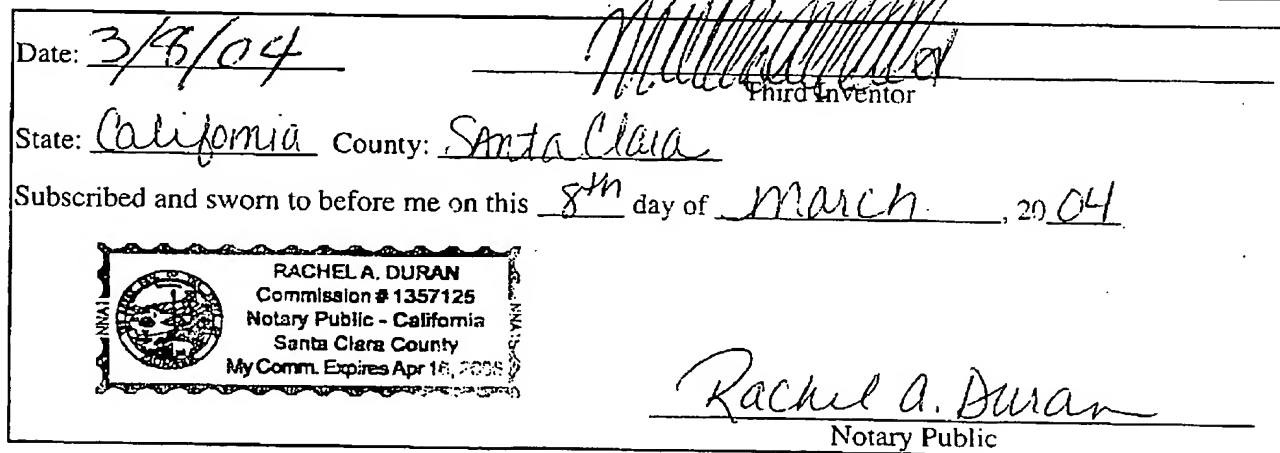 Date: 3/8/04
Third Inventor
State: California County: Santa Clara
Subscribed and sworn to before me on this 8th day of March, 2004
RACHEL A. DURAN
Commission # 1357125
Notary Public - California
Santa Clara County
My Comm. Expires Apr 16,
NNA1
NNA1
Rachel A. Duran
Notary Public